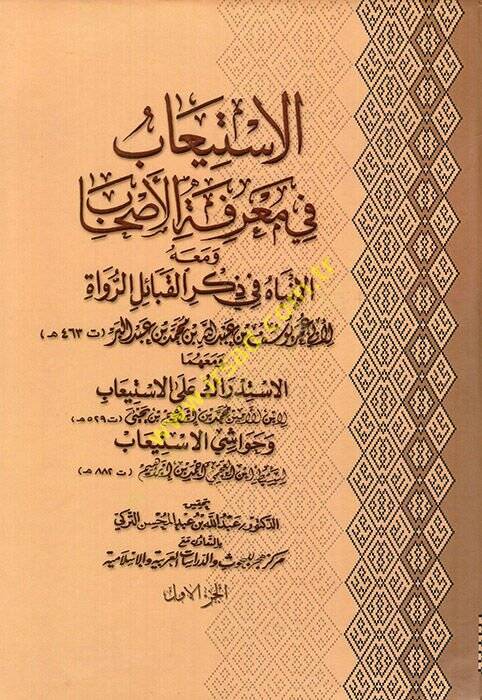 الاستيعاب
في معرفة الأصحاب
ومعه
الإنباه في ذكر القبائل الرواة
لأبي عمر يوسف بن عبد الله بن محمد بن عبد البر (ت ٤٦٣ هـ)
ومعهما
الاستدراك على الاستيعاب
لابن الأمين (ت ٥٢٩ هـ)
وحواشي الاستيعاب
لسبط ابن العجمي (ت ٨٨٢ هـ)
تحقيق
الدكتور عبد الله بن عبد المحسن التركي
بالتعاون مع
مركز هجر للبحوث والدراسات العربية والإسلامية
الجزء الأول